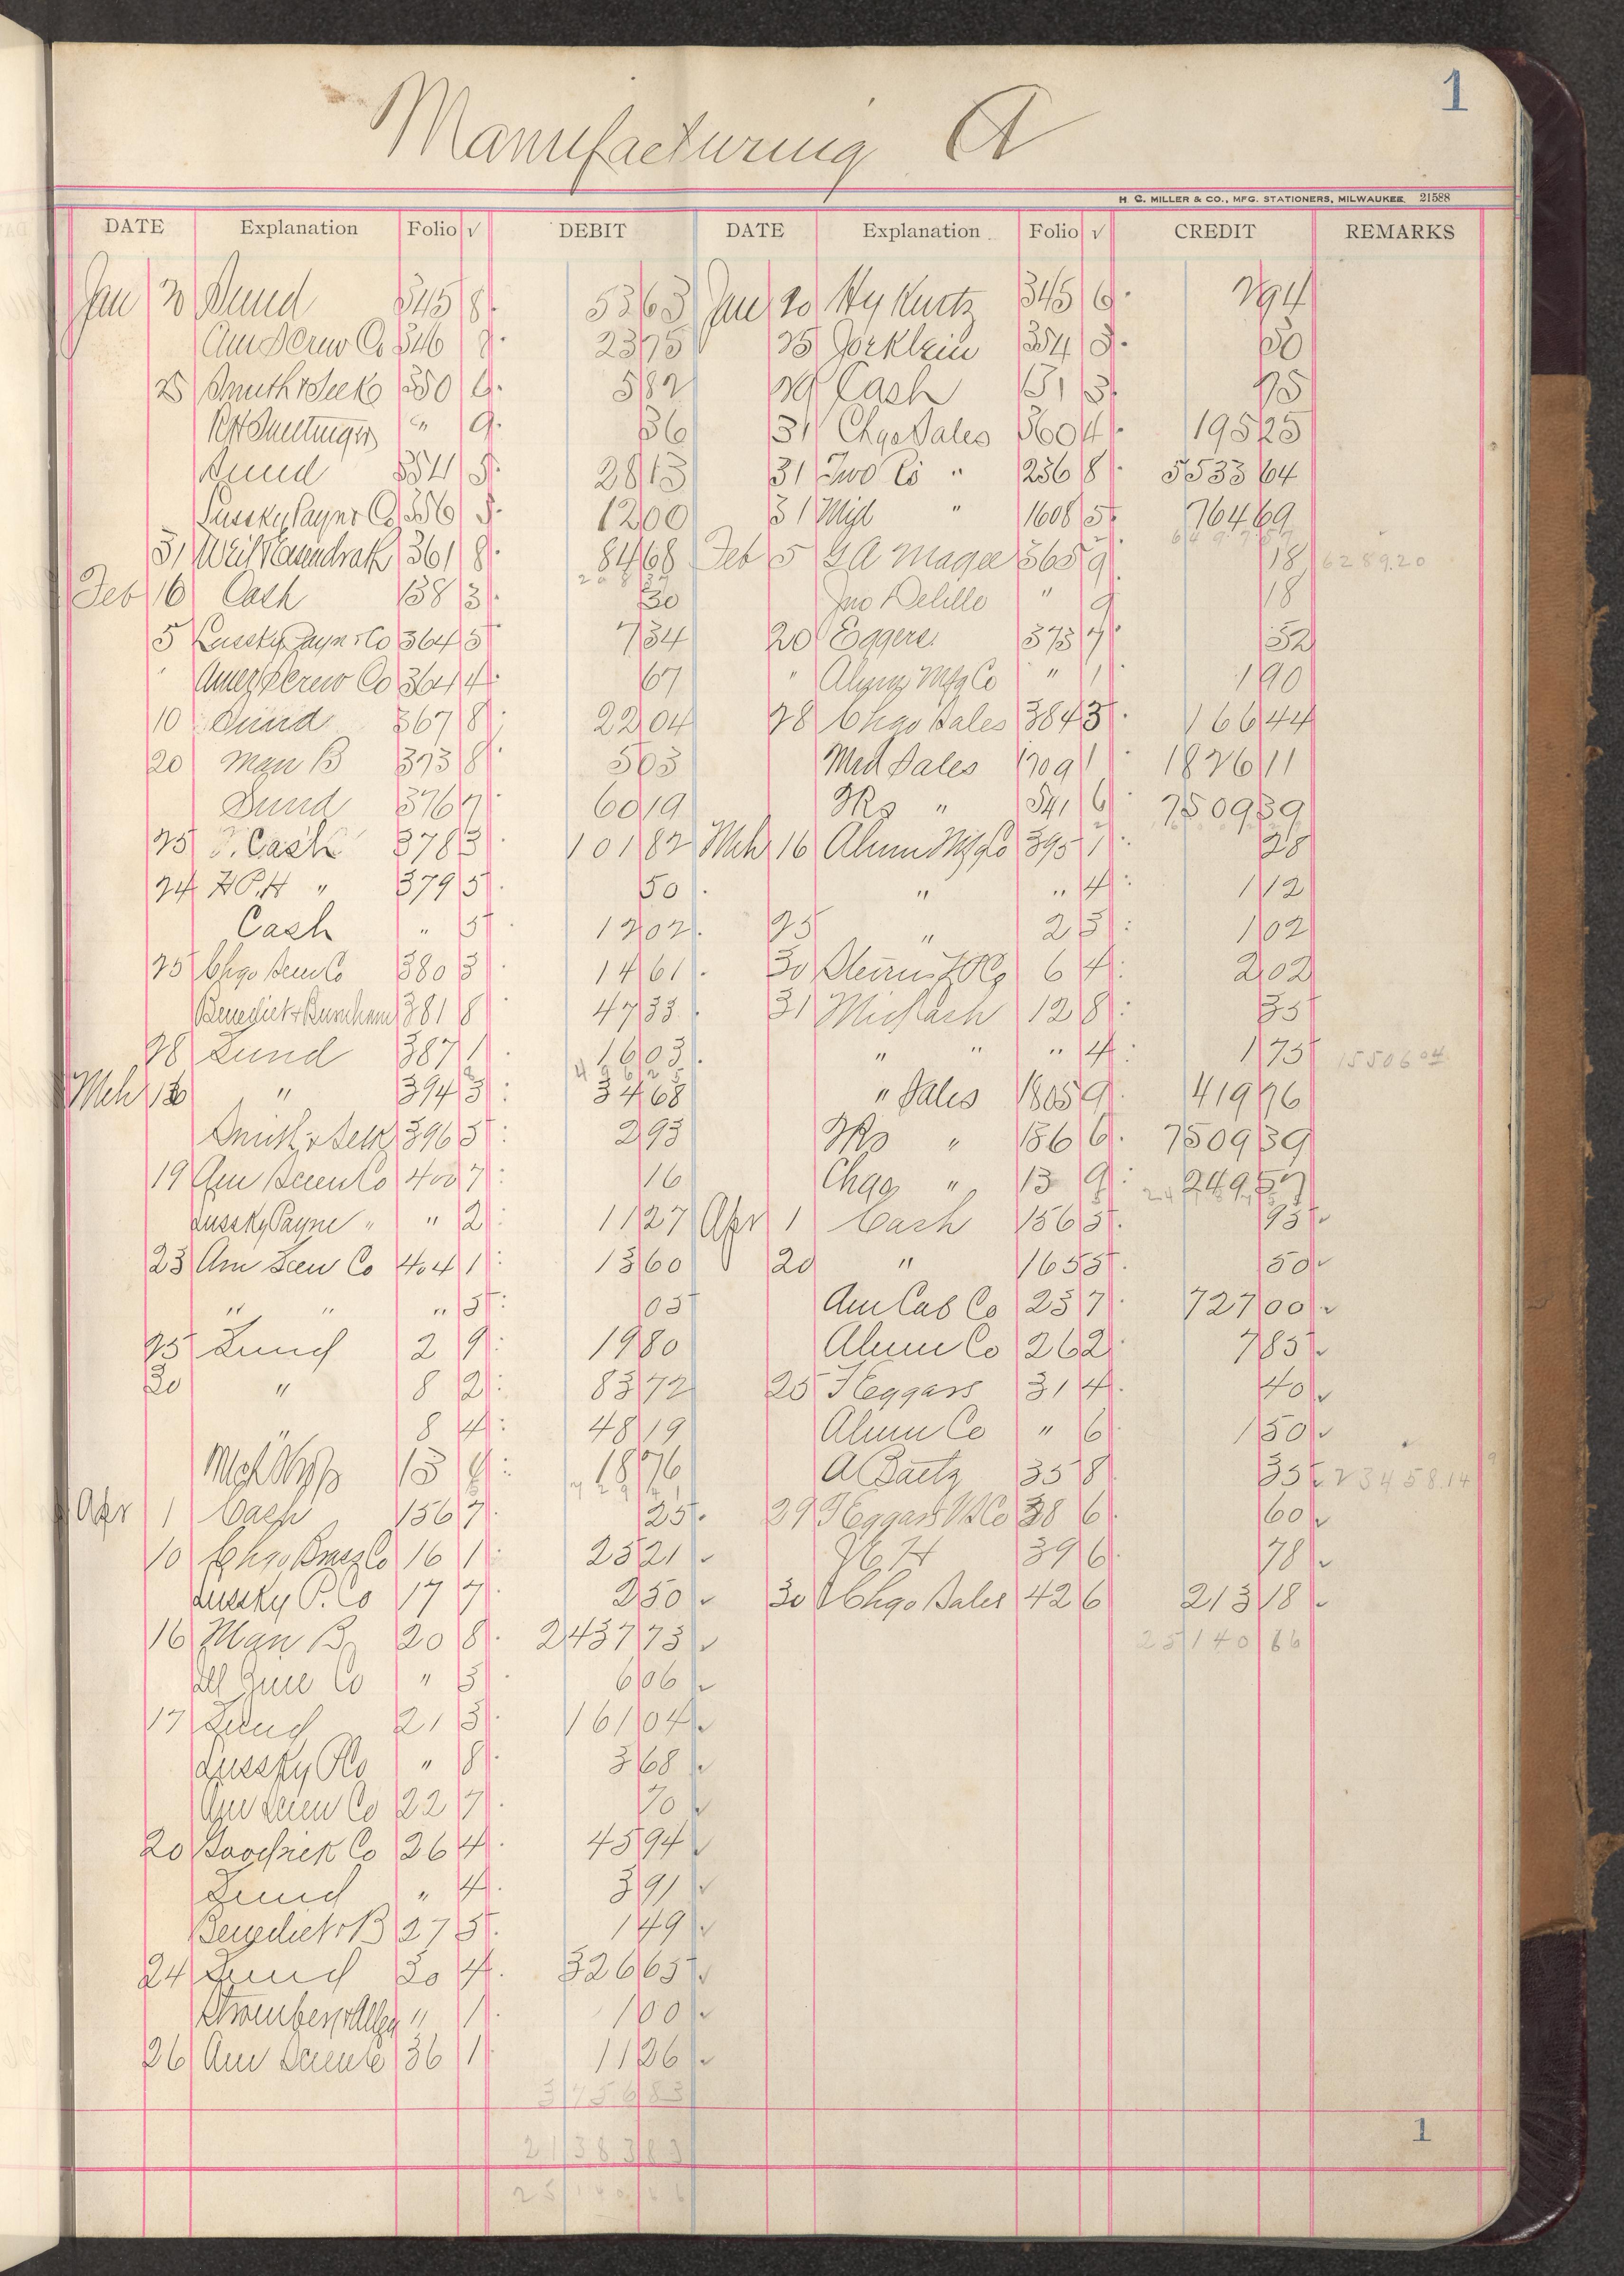 1
Manufacturing A
H. G. MILLER & CO., MFG. STATIONERS, MILWAUKEE. 21588
DATE Explanation Folio √ DEBIT DATE Explanation Folio √ CREDIT REMARKS
Jan 20 Sund 345 8 53 63 Jan 20 Hy Kurtz 345 6 2 94
Am Screw Co 346 23 75 25 354 3 50
25 Smith & Seek 350 6 5 82 29 Cash 131 3 75
" 9 36 31 Chgo Sales 360 4 195 25
Sund 354 5 28 13 31 Two Rs " 236 8 5533 64
Lussky Payn & Co 356 5 12 00 31 Mil " 160 8 5 764 69
31 361 8 84 68 Feb 5 G A Magee 365 9 18 6289.20
Feb 16 Cash 138 3 30 Jno Delillo " 9 18
5 Lussky Payn & Co 364 5 7 34 20 Eggers 373 7 52
Amer Screw Co 364 4 67 " Alumn Mfg Co " 1 1 90
10 Sund 367 8 22 04 28 Chgo Sales 384 3 166 44
20 Man B 373 8 5 03 Med Sales 1709 1 1826 11
Sund 376 7 60 19 Rs " 541 6 7509 39
25 Cash 378 3 101 82 Mch 16 Alumn Mfg Co 395 1 28
24 H P. H " 379 5 50 " " 4 1 12
Cash " 5 12 02 25 " 2 5 1 02
25 Chgo Screw Co 380 3 14 61 30 6 4 2 02
Benedict & Burnham 381 8 47 33 31 Mil Cash 12 8 35
28 Sund 387 1 16 03 " " " 4 1 75 15506 04
Mch 16 " 394 3 34 68 " Sales 1805 9 419 76
Smith & Seek 396 5 2 93 Rs " 186 6 7509 39
19 Am Screw Co 400 7 16 Chgo " 13 9 249 57
Lussky Payne " " 2 11 27 Apr 1 Cash 156 5 95
23 Am Screw Co 404 1 13 60 20 " 165 5 50
" " " 5 05 Am Cab Co 25 7 727 00
25 Sund 2 9 19 80 Alum Co 26 2 7 85
30 " 8 2 83 72 25 F Eggars 31 4 40
" 8 4 48 19 Alum Co " 6 1 50
13 18 76 A Baetz 35 8 35 23458.14
Apr 1 Cash 156 7 25 29 F Eggars V S Co 38 6 60
10 Chgo Brass Co 16 1 25 21 H 39 6 78
Lussky P. Co 17 7 2 50 30 Chgo Sales 42 6 213 18
16 Man B 20 8 2437 73 25140 66
Ill Co " 3 6 06
17 Sund 21 3 161 04
Lussky P Co " 8 3 68
Am Screw Co 22 7 70
20 Goodrich Co 26 4 45 94
Sund " 4 3 91
Benedict & B 27 5 1 49
24 Sund 30 4 326 65
" 1 1 00
26 Am Screw Co 36 1 11 26
3756 83
1
21383 83
25140 66